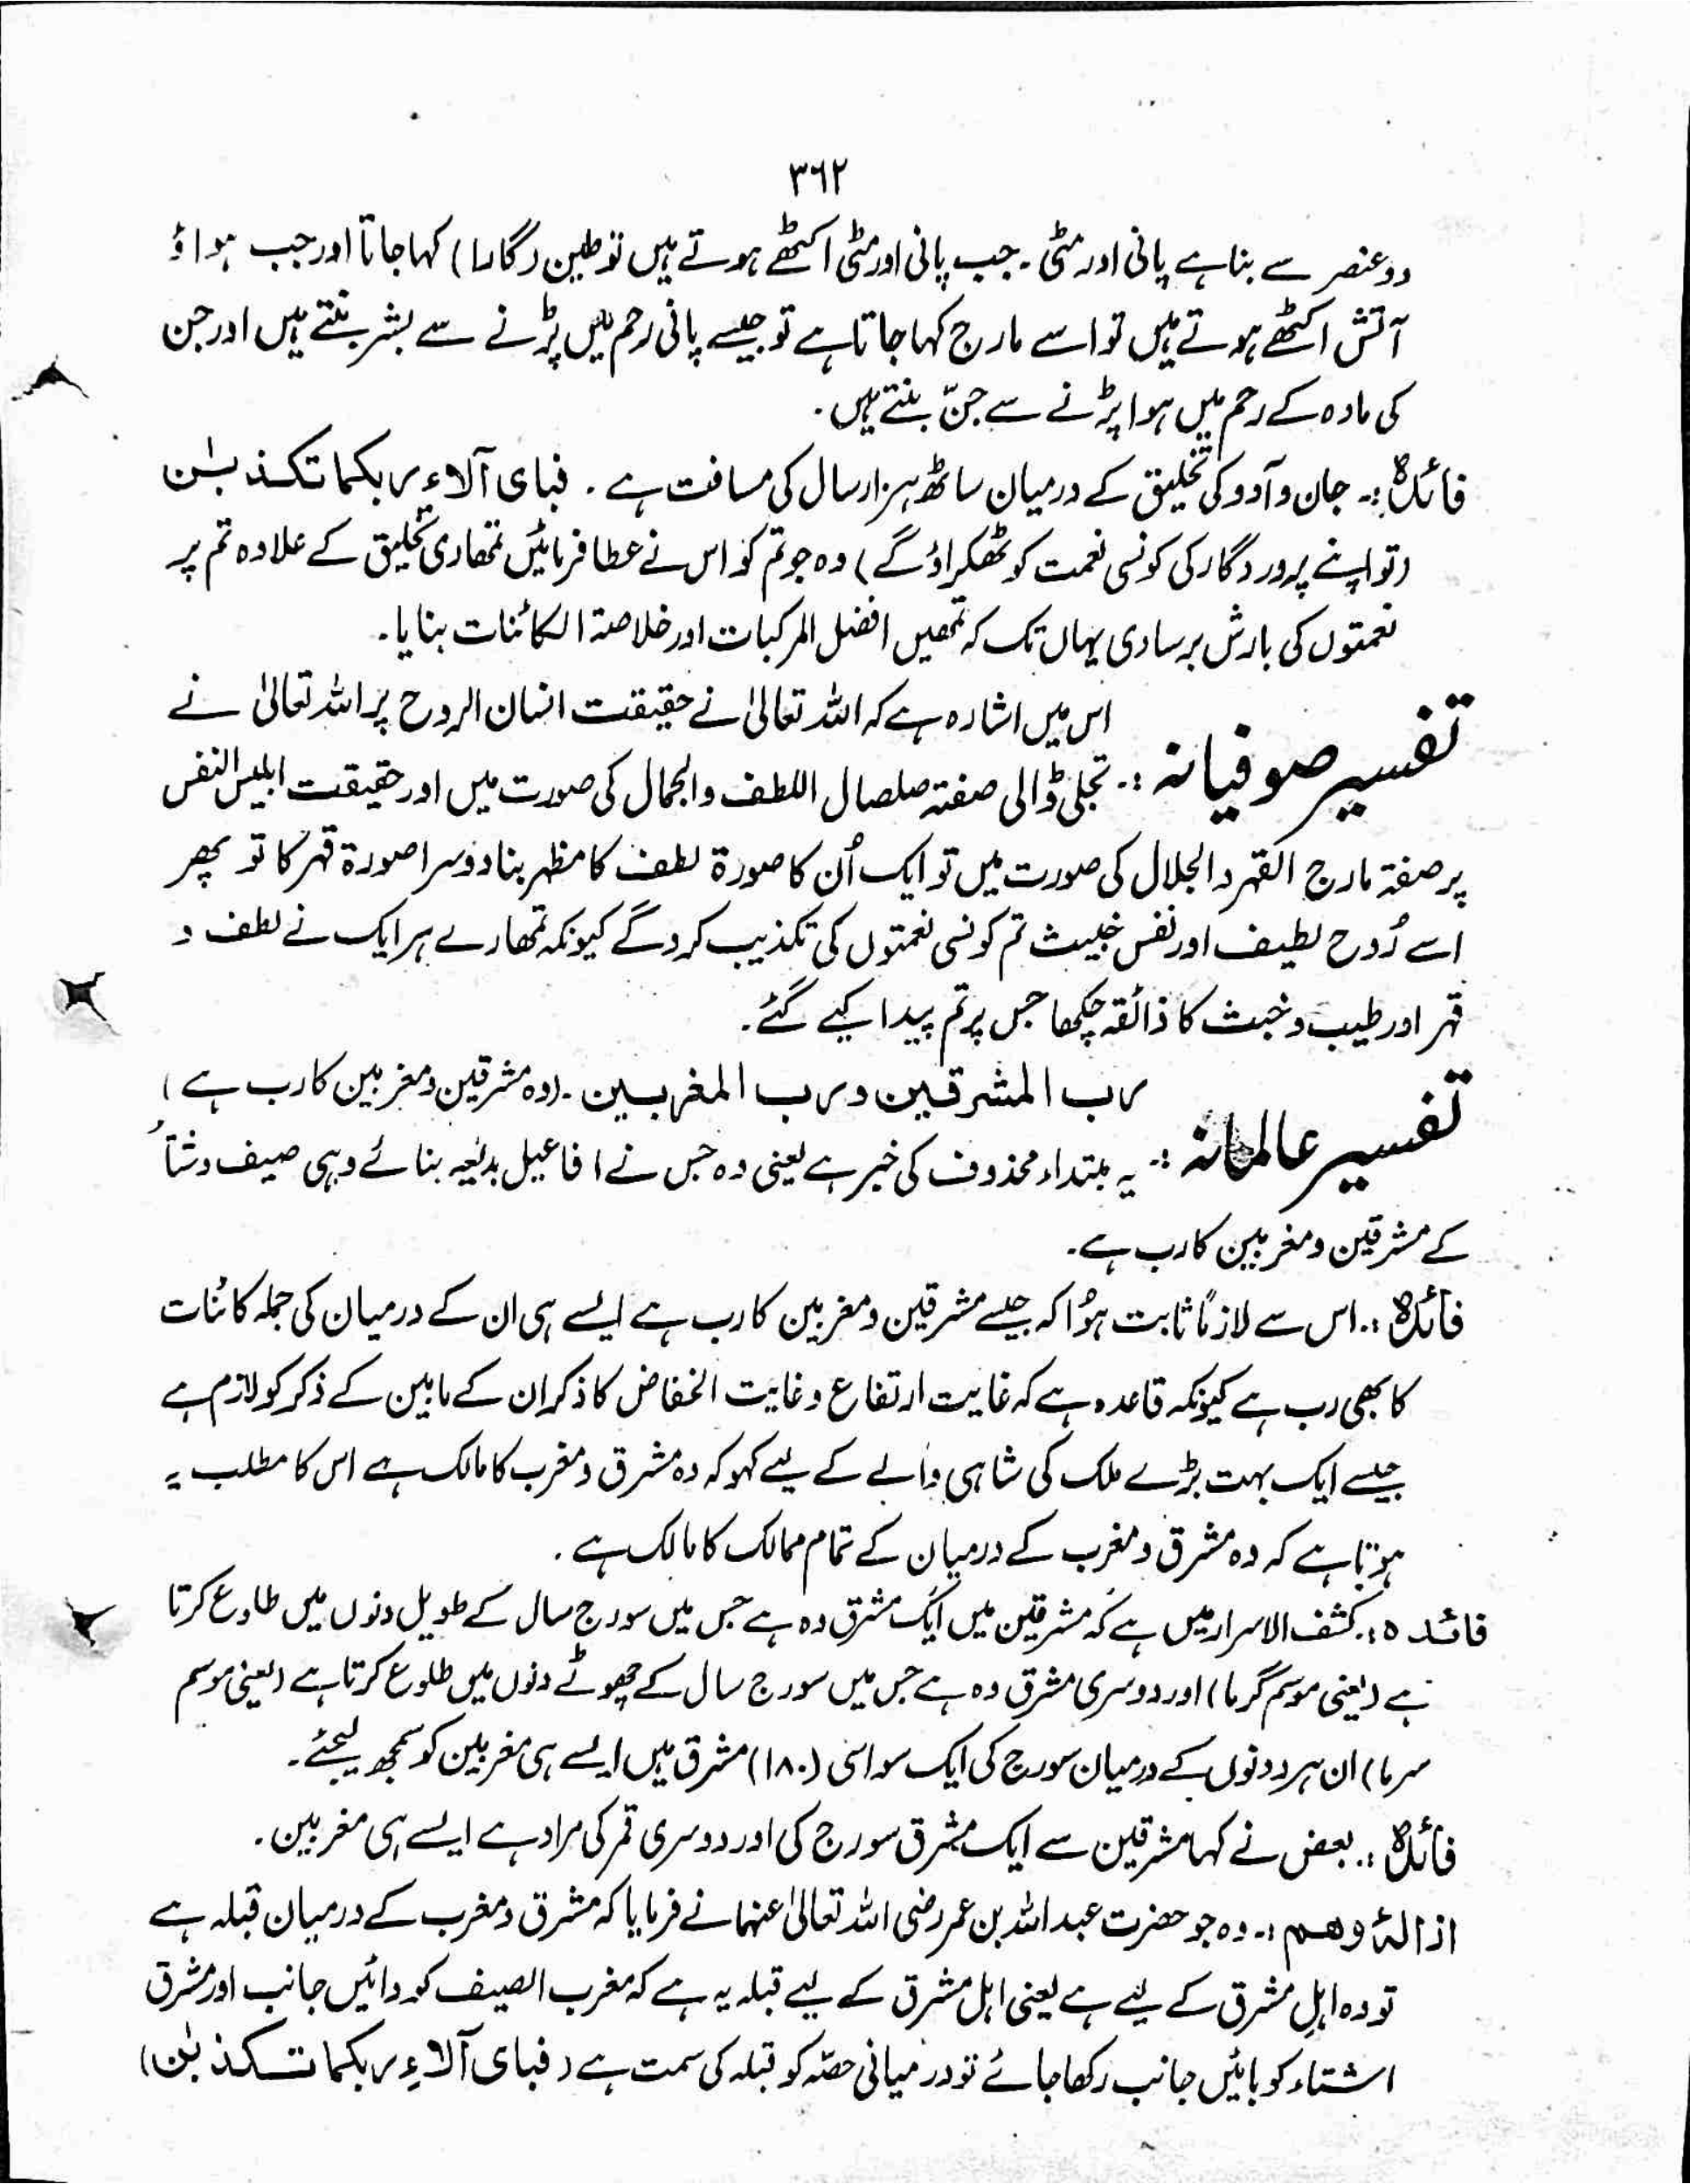 ۳۶۲
دو عنصر سے بنا ہے پانی اور مٹی ۔ جب پانی اور مٹی اکٹھے ہوتے ہیں تو طین (گارا) کہا جاتا اور جب ہوا وُ
آتش اکٹھے ہوتے ہیں تو اسے مارج کہا جاتا ہے تو جیسے پانی رحم میں پڑنے سے بشر بنتے ہیں اور جن
کی مادہ کے رحم میں ہوا پڑنے سے جنّ بنتے ہیں ۔
فائدہ :۔ جان و آدو کی تخلیق کے درمیان ساٹھ ہزار سال کی مسافت ہے ۔ فبای آلاء ربکما تکذبٰن
(تو اپنے پروردگار کی کونسی نعمت کو ٹھکراؤ گے) وہ جو تم کو اس نے عطا فرمائیں تمھاری تخلیق کے علاوہ تم پر
نعمتوں کی بارش برسادی یہاں تک کہ تمھیں افضل المرکبات اور خلاصۃ الکائنات بنایا ۔
اس میں اشارہ ہے کہ اللہ تعالیٰ نے حقیقت انسان الروح پر اللہ تعالیٰ نے
تفسیر صوفیانہ :۔ تجلی ڈالی صفتہ صلصال اللطف والجمال کی صورت میں اور حقیقت ابلیس النفس
پر صفتہ مارج القہر والجلال کی صورت میں تو ایک اُن کا صورۃ لطف کا مظہر بنا دوسرا صورۃ قہر کا تو پھر
اسے رُوح لطیف اور نفس خبیث تم کونسی نعمتوں کی تکذیب کروگے کیونکہ تمھارے ہر ایک نے لطف و
قہر اور طیب و خبث کا ذائقہ چکھا جس پر تم پیدا کیے گئے ۔
رب المشرقین و رب المغربین ۔ (وہ مشرقین و مغربین کا رب ہے)
تفسیر عالمانہ :۔ یہ مبتداء محذوف کی خبر ہے یعنی وہ جس نے افاعیل بدیعہ بنائے وہی صیف و شتاُ
کے مشرقین و مغربین کا رب ہے ۔
فائدہ :۔ اس سے لازمًا ثابت ہوُا کہ جیسے مشرقین و مغربین کا رب ہے ایسے ہی ان کے درمیان کی جملہ کائنات
کا بھی رب ہے کیونکہ قاعدہ ہے کہ غایت ارتفاع و غایت انخفاض کا ذکر ان کے مابین کے ذکر کو لازم ہے
جیسے ایک بہت بڑے ملک کی شاہی والے کے لیے کہو کہ وہ مشرق و مغرب کا مالک ہے اس کا مطلب یہ
ہوتا ہے کہ وہ مشرق و مغرب کے درمیان کے تمام ممالک کا مالک ہے ۔
فائدہ :۔ کشف الاسرار میں ہے کہ مشرقین میں ایک مشرق وہ ہے جس میں سورج سال کے طویل دنوں میں طلوع کرتا
ہے (یعنی موسم گرما) اور دوسری مشرق وہ ہے جس میں سورج سال کے چھوٹے دنوں میں طلوع کرتا ہے (یعنی موسم
سرما) ان ہر دونوں کے درمیان سورج کی ایک سو اسی (۱۸۰) مشرق ہیں ایسے ہی مغربین کو سمجھ لیجئے ۔
فائدہ :۔ بعض نے کہا مشرقین سے ایک مشرق سورج کی اور دوسری قمر کی مراد ہے ایسے ہی مغربین ۔
ازالۂ وھم :۔ وہ جو حضرت عبداللہ بن عمر رضی اللہ تعالیٰ عنہما نے فرمایا کہ مشرق و مغرب کے درمیان قبلہ ہے
تو وہ اہلِ مشرق کے لیے ہے یعنی اہل مشرق کے لیے قبلہ یہ ہے کہ مغرب الصیف کو دائیں جانب اور مشرق
اشتاء کو بائیں جانب رکھا جائے تو درمیانی حصّہ کو قبلہ کی سمت ہے (فبای آلاءِ ربکما تکذبٰن)